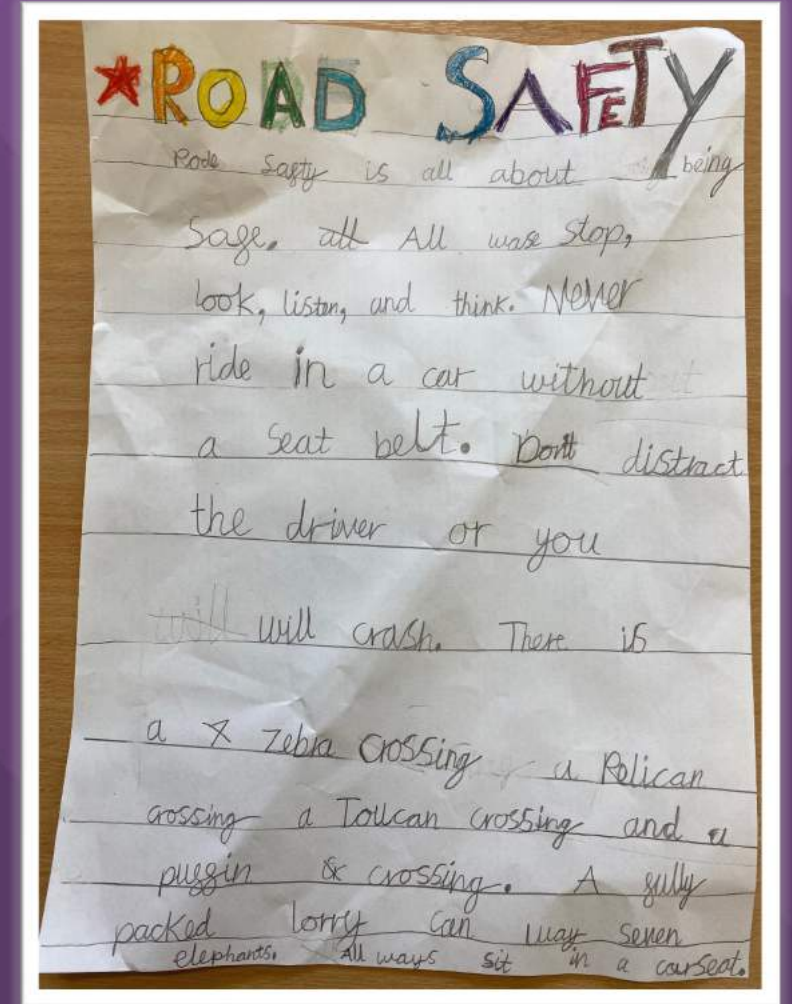 *ROAD SAFETY
Rode Safty is all about being
Safe. all All wase stop,
look, listen, and think. Never
ride in a car without
a seat belt. Don't distract
the driver or you
will will crash. There is
a zebra crossing a Pelican
crossing a Toucan crossing and a
puffin crossing. A fully
packed lorry can way seven
elephants. All ways sit in a carseat.